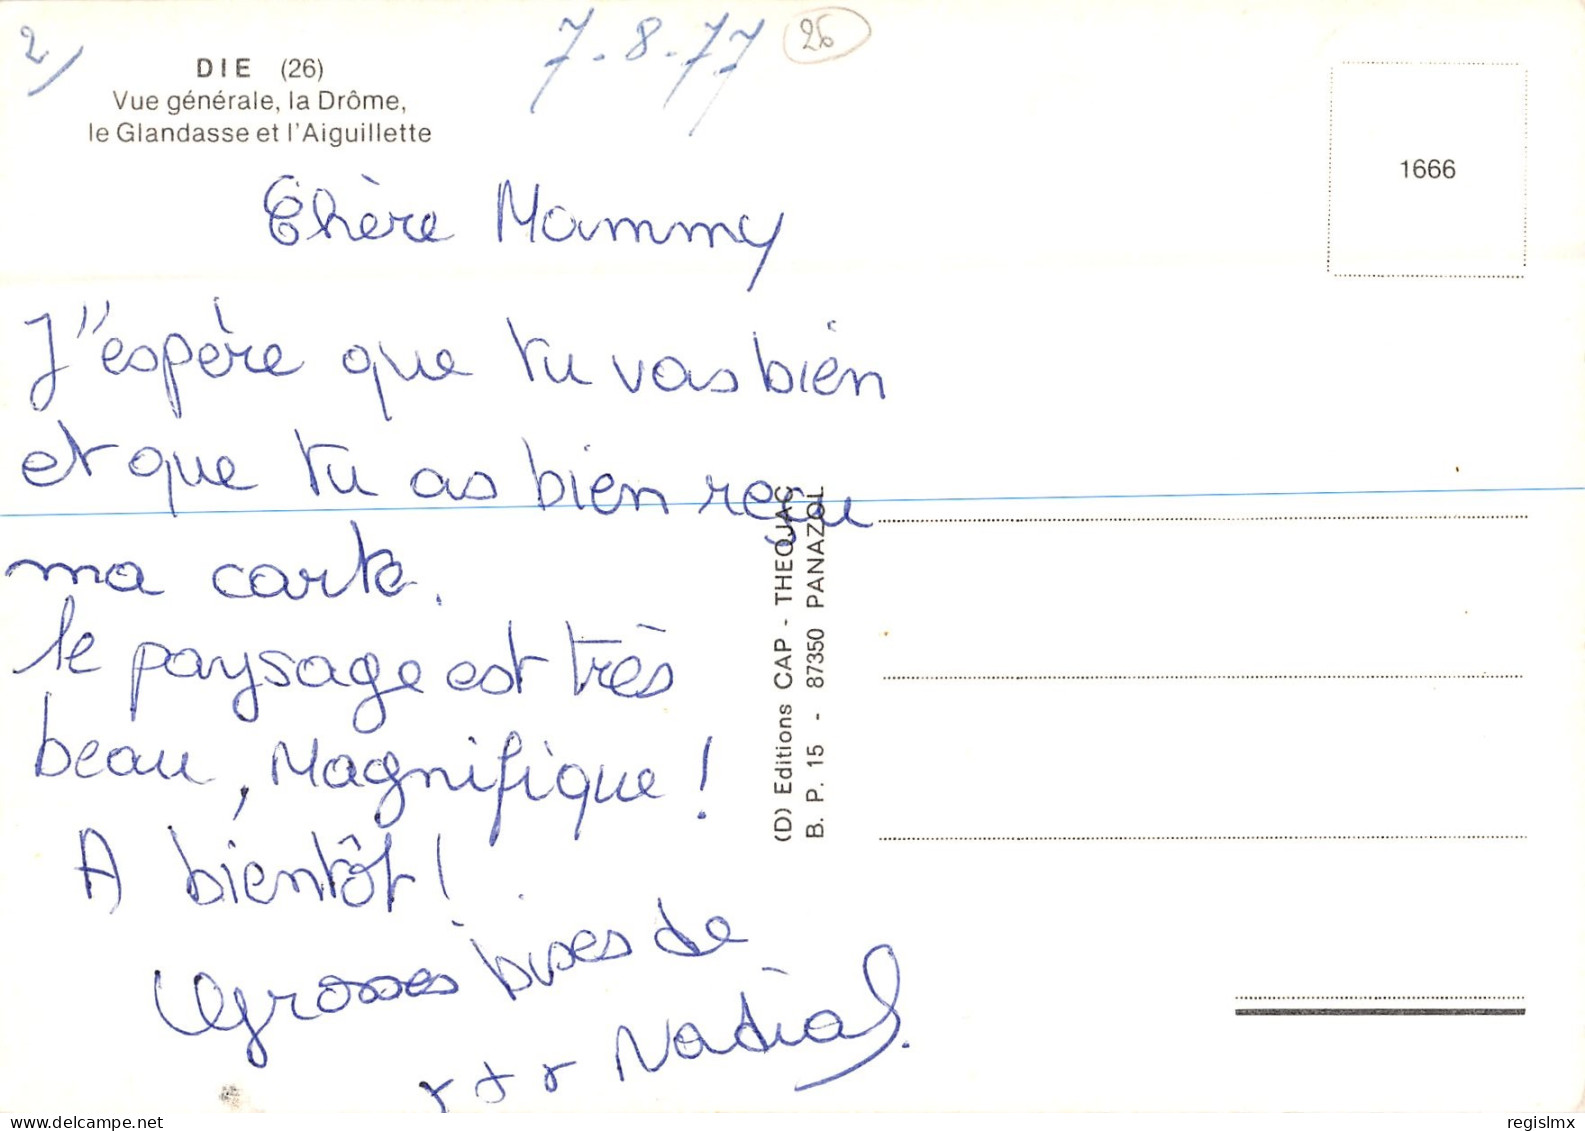 2/
7-8-77
26
DIE (26)
Vue générale, la Drôme,
le Glandasse et l'Aiguillette
1666
Chère Mammy
J"espère que tu vas bien
et que tu as bien reçu
ma carte.
le paysage est très
beau, Magnifique !
A bientôt !
Grosses bises de
x + x Nadia
(D) Editions CAP - THEOJAC
B. P. 15 - 87350 PANAZOL
regislmx